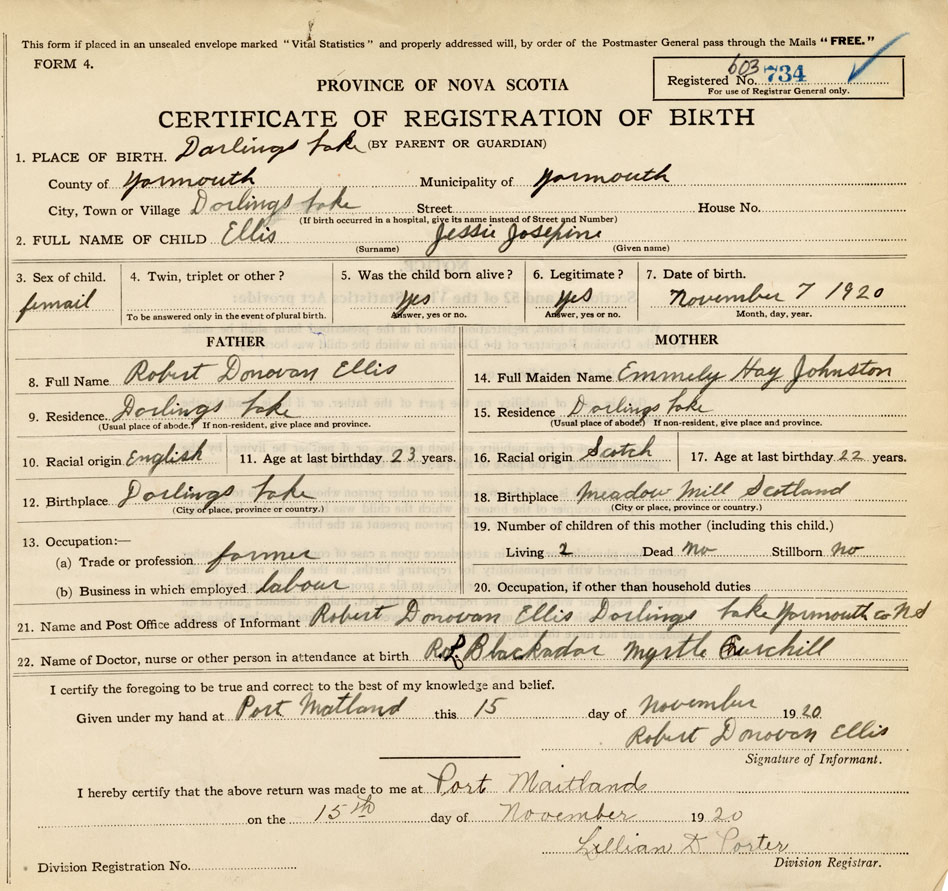 This form if placed in an unsealed envelope marked "Vital Statistics" and properly addressed will, by order of the Postmaster General pass through the Mails "FREE."
FORM 4.
603
Registered No. 734
For use of Registrar General only.
PROVINCE OF NOVA SCOTIA
CERTIFICATE OF REGISTRATION OF BIRTH
1. PLACE OF BIRTH. Darlings Lake (BY PARENT OR GUARDIAN)
County of Yarmouth Municipality of Yarmouth
City, Town or Village Darlings Lake Street House No.
(If birth occurred in a hospital, give its name instead of Street and Number)
2. FULL NAME OF CHILD Ellis Jessie Josepine
(Surname) (Given name)
3. Sex of child. 4. Twin, triplet or other? 5. Was the child born alive? 6. Legitimate? 7. Date of birth.
femail yes yes November 7 1920
To be answered only in the event of plural birth. Answer, yes or no. Answer, yes or no. Month, day, year.
FATHER MOTHER
8. Full Name Robert Donovan Ellis 14. Full Maiden Name Emmely Hay Johnston
9. Residence. Darlings Lake 15. Residence Darlings Lake
(Usual place of abode.) If non-resident, give place and province. (Usual place of abode.) If non-resident, give place and province.
10. Racial origin English 11. Age at last birthday 23 years. 16. Racial origin Scotch 17. Age at last birthday 22 years.
12. Birthplace Darlings Lake 18. Birthplace Meadow Mill Scotland
(City or place, province or country.) (City or place, province or country.)
13. Occupation:— 19. Number of children of this mother (including this child.)
(a) Trade or profession farmer Living 2 Dead no Stillborn no
(b) Business in which employed labour 20. Occupation, if other than household duties
21. Name and Post Office address of Informant Robert Donovan Ellis Darlings Lake Yarmouth co N S
22. Name of Doctor, nurse or other person in attendance at birth Blackadar Myrtle Churchill
I certify the foregoing to be true and correct to the best of my knowledge and belief.
Given under my hand at Port Matland this 15 day of November 1920
Robert Donovan Ellis
Signature of Informant.
I hereby certify that the above return was made to me at Port Maitland
on the 15th day of November 1920
Lillian D Porter
Division Registration No. Division Registrar.